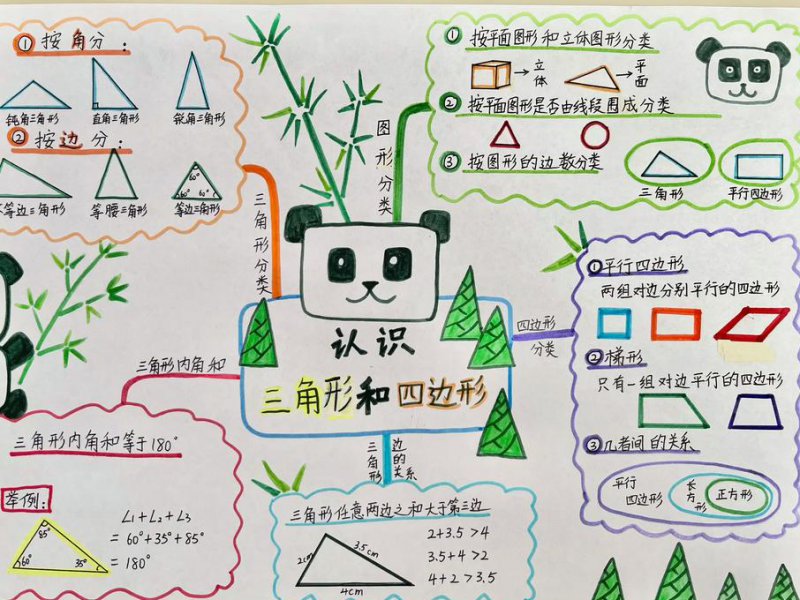 ①按角分：
钝角三角形 直角三角形 锐角三角形
②按边分：
不等边三角形 等腰三角形 等边三角形
60° 60°
三角形分类
图形分类
①按平面图形和立体图形分类
立体 平面
②按平面图形是否由线段围成分类
③按图形的边数分类
三角形 平行四边形
认识
三角形和四边形
四边形分类
①平行四边形
两组对边分别平行的四边形
②梯形
只有一组对边平行的四边形
③几者间的关系
平行四边形 长方形 正方形
三角形内角和
三角形内角和等于180°
举例：
85° 60° 35°
∠1+∠2+∠3
=60°+35°+85°
=180°
三角形边的关系
三角形任意两边之和大于第三边
2cm 3.5cm 4cm
2+3.5>4
3.5+4>2
4+2>3.5